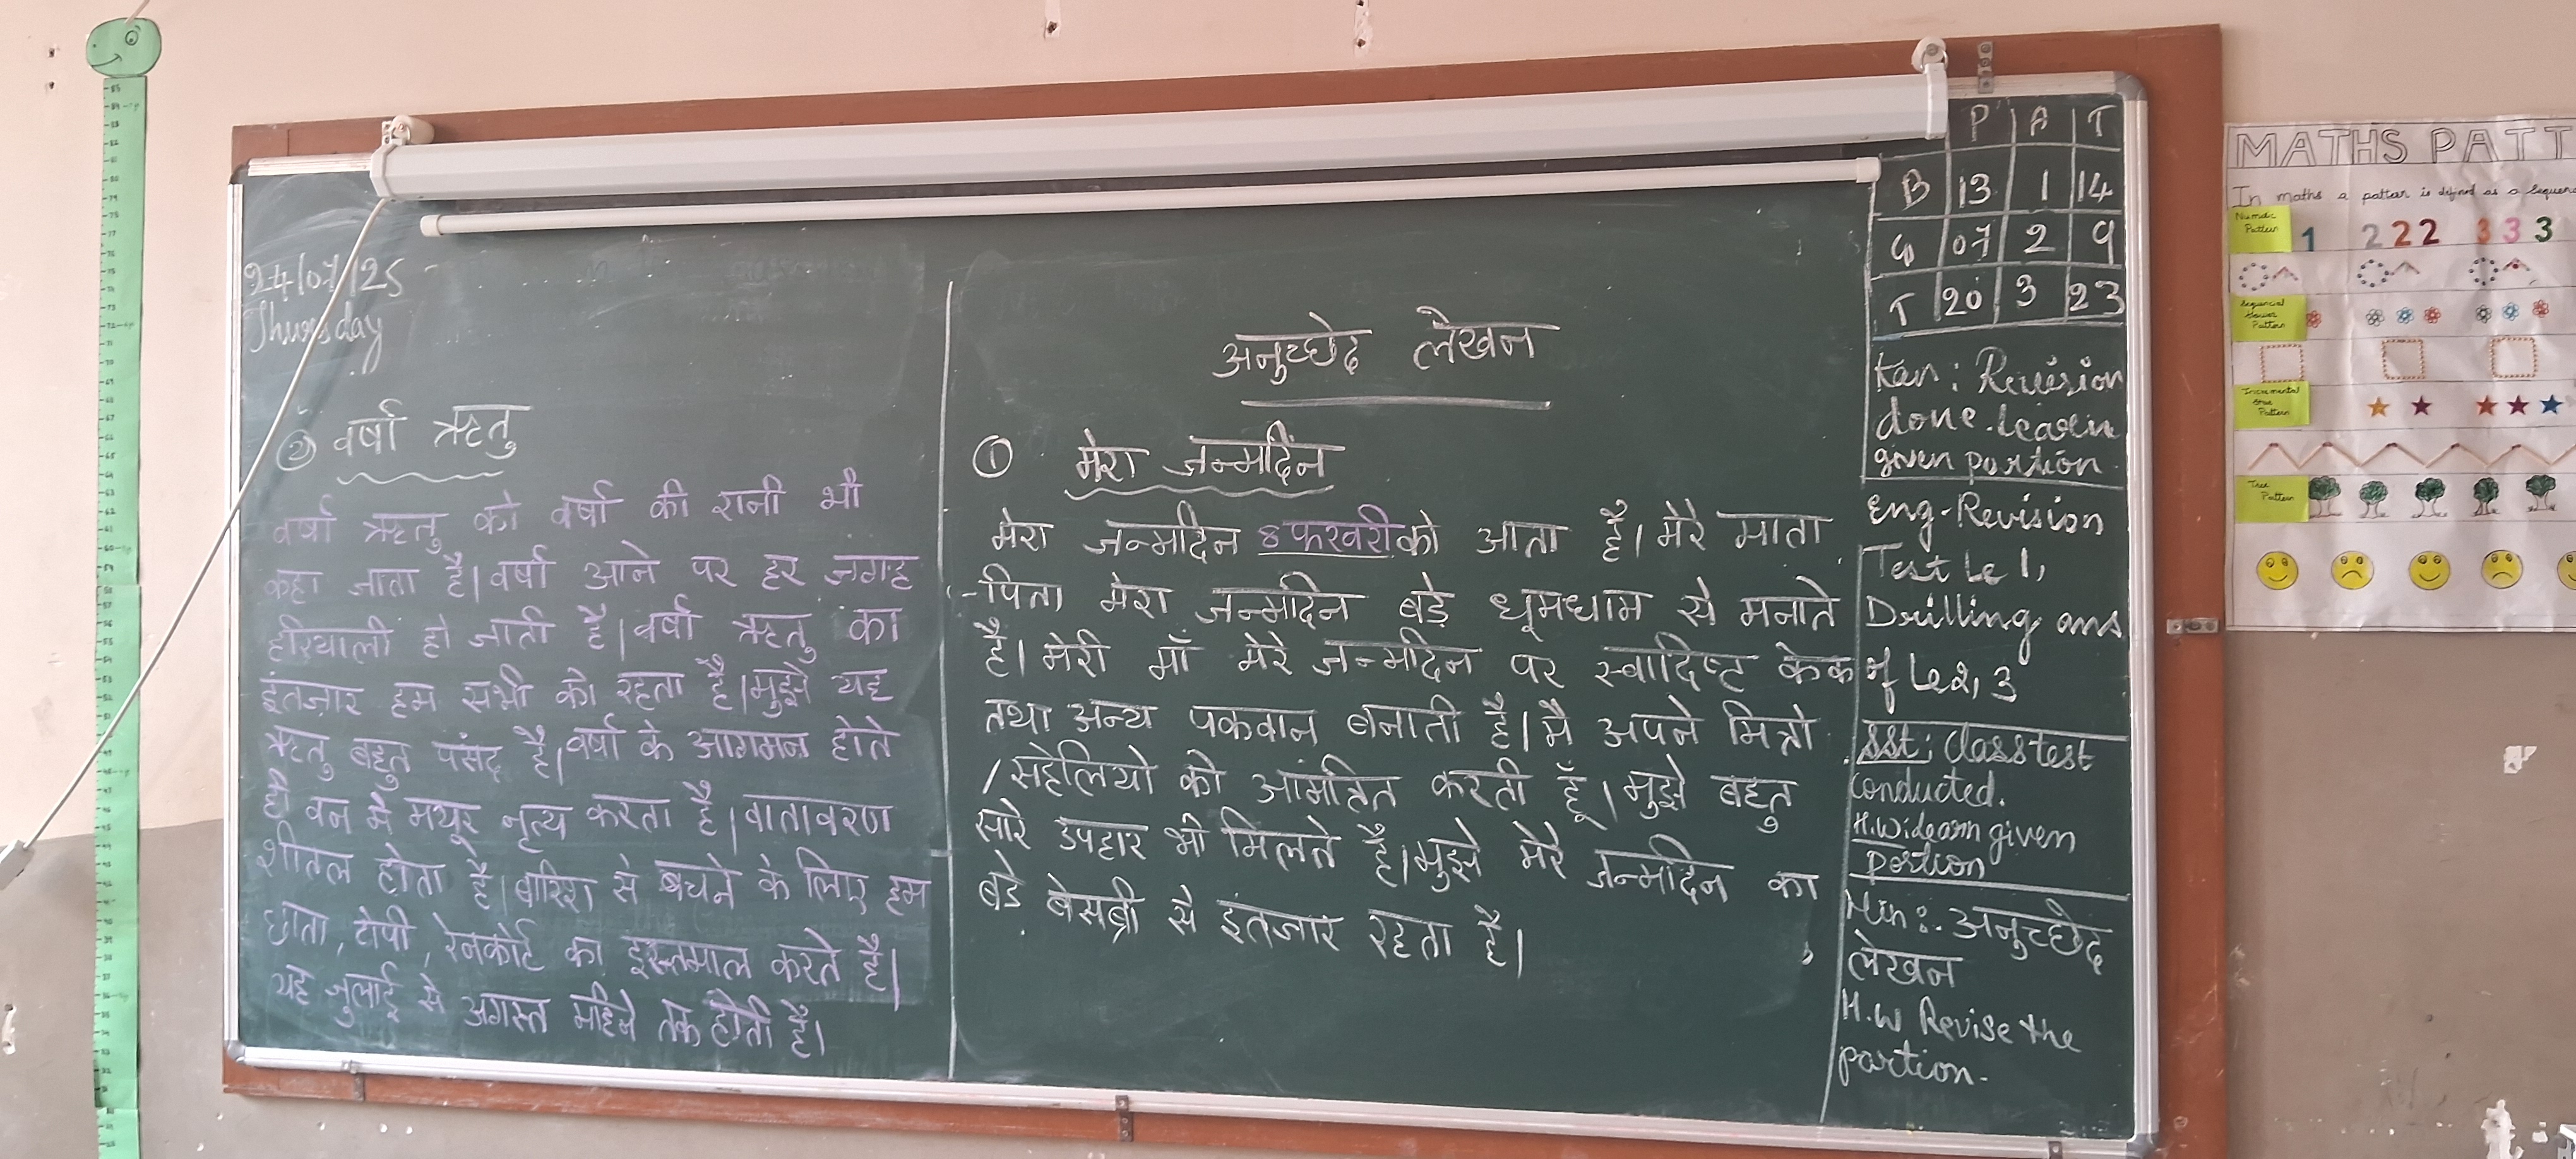 24/07/25
Thursday
② वर्षा ऋतु
वर्षा ऋतु को वर्षा की रानी भी
कहा जाता है। वर्षा आने पर हर जगह
हरियाली हो जाती है। वर्षा ऋतु का
इंतज़ार हम सभी को रहता है। मुझे यह
ऋतु बहुत पसंद है। वर्षा के आगमन होते
ही वन में मयूर नृत्य करता है। वातावरण
शीतल होता है। बारिश से बचने के लिए हम
छाता, टोपी, रेनकोर्ट का इस्तमाल करते है।
यह जुलाई से अगस्त महिने तक होती है।
अनुच्छेद लेखन
① मेरा जन्मदिन
मेरा जन्मदिन 8 फरवरी को आता है। मेरे माता
-पिता मेरा जन्मदिन बड़े धूमधाम से मनाते
है। मेरी माँ मेरे जन्मदिन पर स्वादिष्ट केक
तथा अन्य पकवान बनाती है। मै अपने मित्रो
/ सहेलियो को आमंत्रित करती हूँ। मुझे बहुत
सारे उपहार भी मिलते है। मुझे मेरे जन्मदिन का
बड़े बेसब्री से इंतजार रहता है।
P A T
B 13 1 14
G 07 2 9
T 20 3 23
Kan: Revision
done. learn
given portion.
Eng-Revision
Test Le 1,
Drilling ans
of Le 2, 3
SSt: Class test
conducted.
H.W: learn given
portion
Hin: अनुच्छेद
लेखन
H.W Revise the
portion.
MATHS PATT
In maths a pattern is defined as a sequen
Numeric
Pattern
1 2 2 2 3 3 3
Sequencial
flower
Pattern
Incremental
Star
Pattern
Tree
Pattern